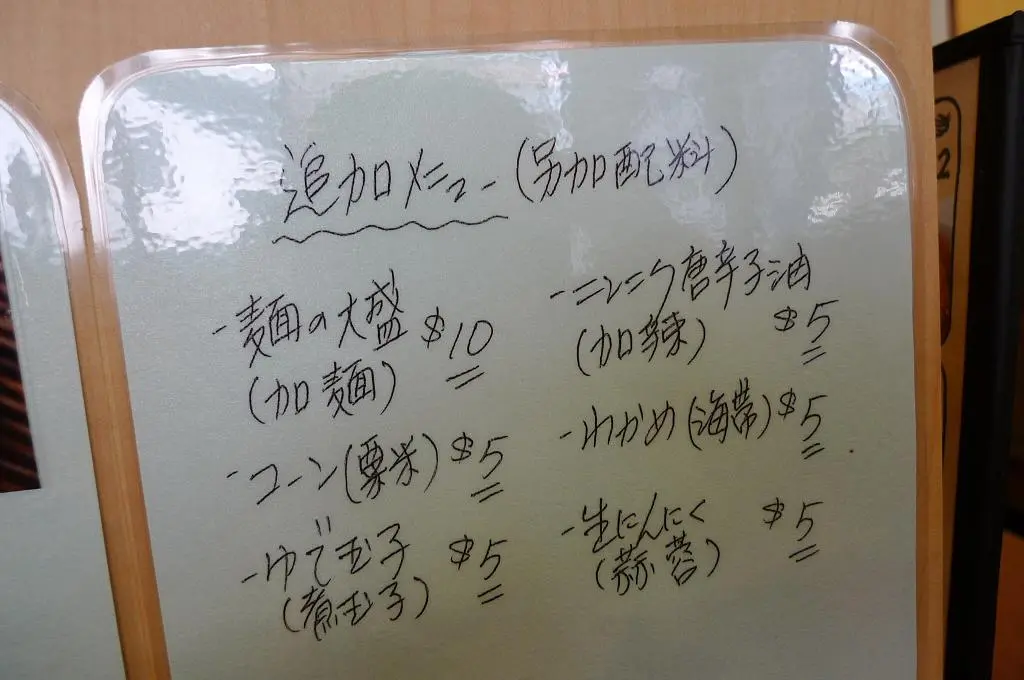 追加メニュー(另加配料)
-麺の大盛 $10
(加麺)
-コーン(粟米) $5
-ゆで玉子 $5
(煮玉子)
-ニンニク唐辛子油
(加辣) $5
-わかめ(海帯) $5
-生にんにく $5
(蒜蓉)
2